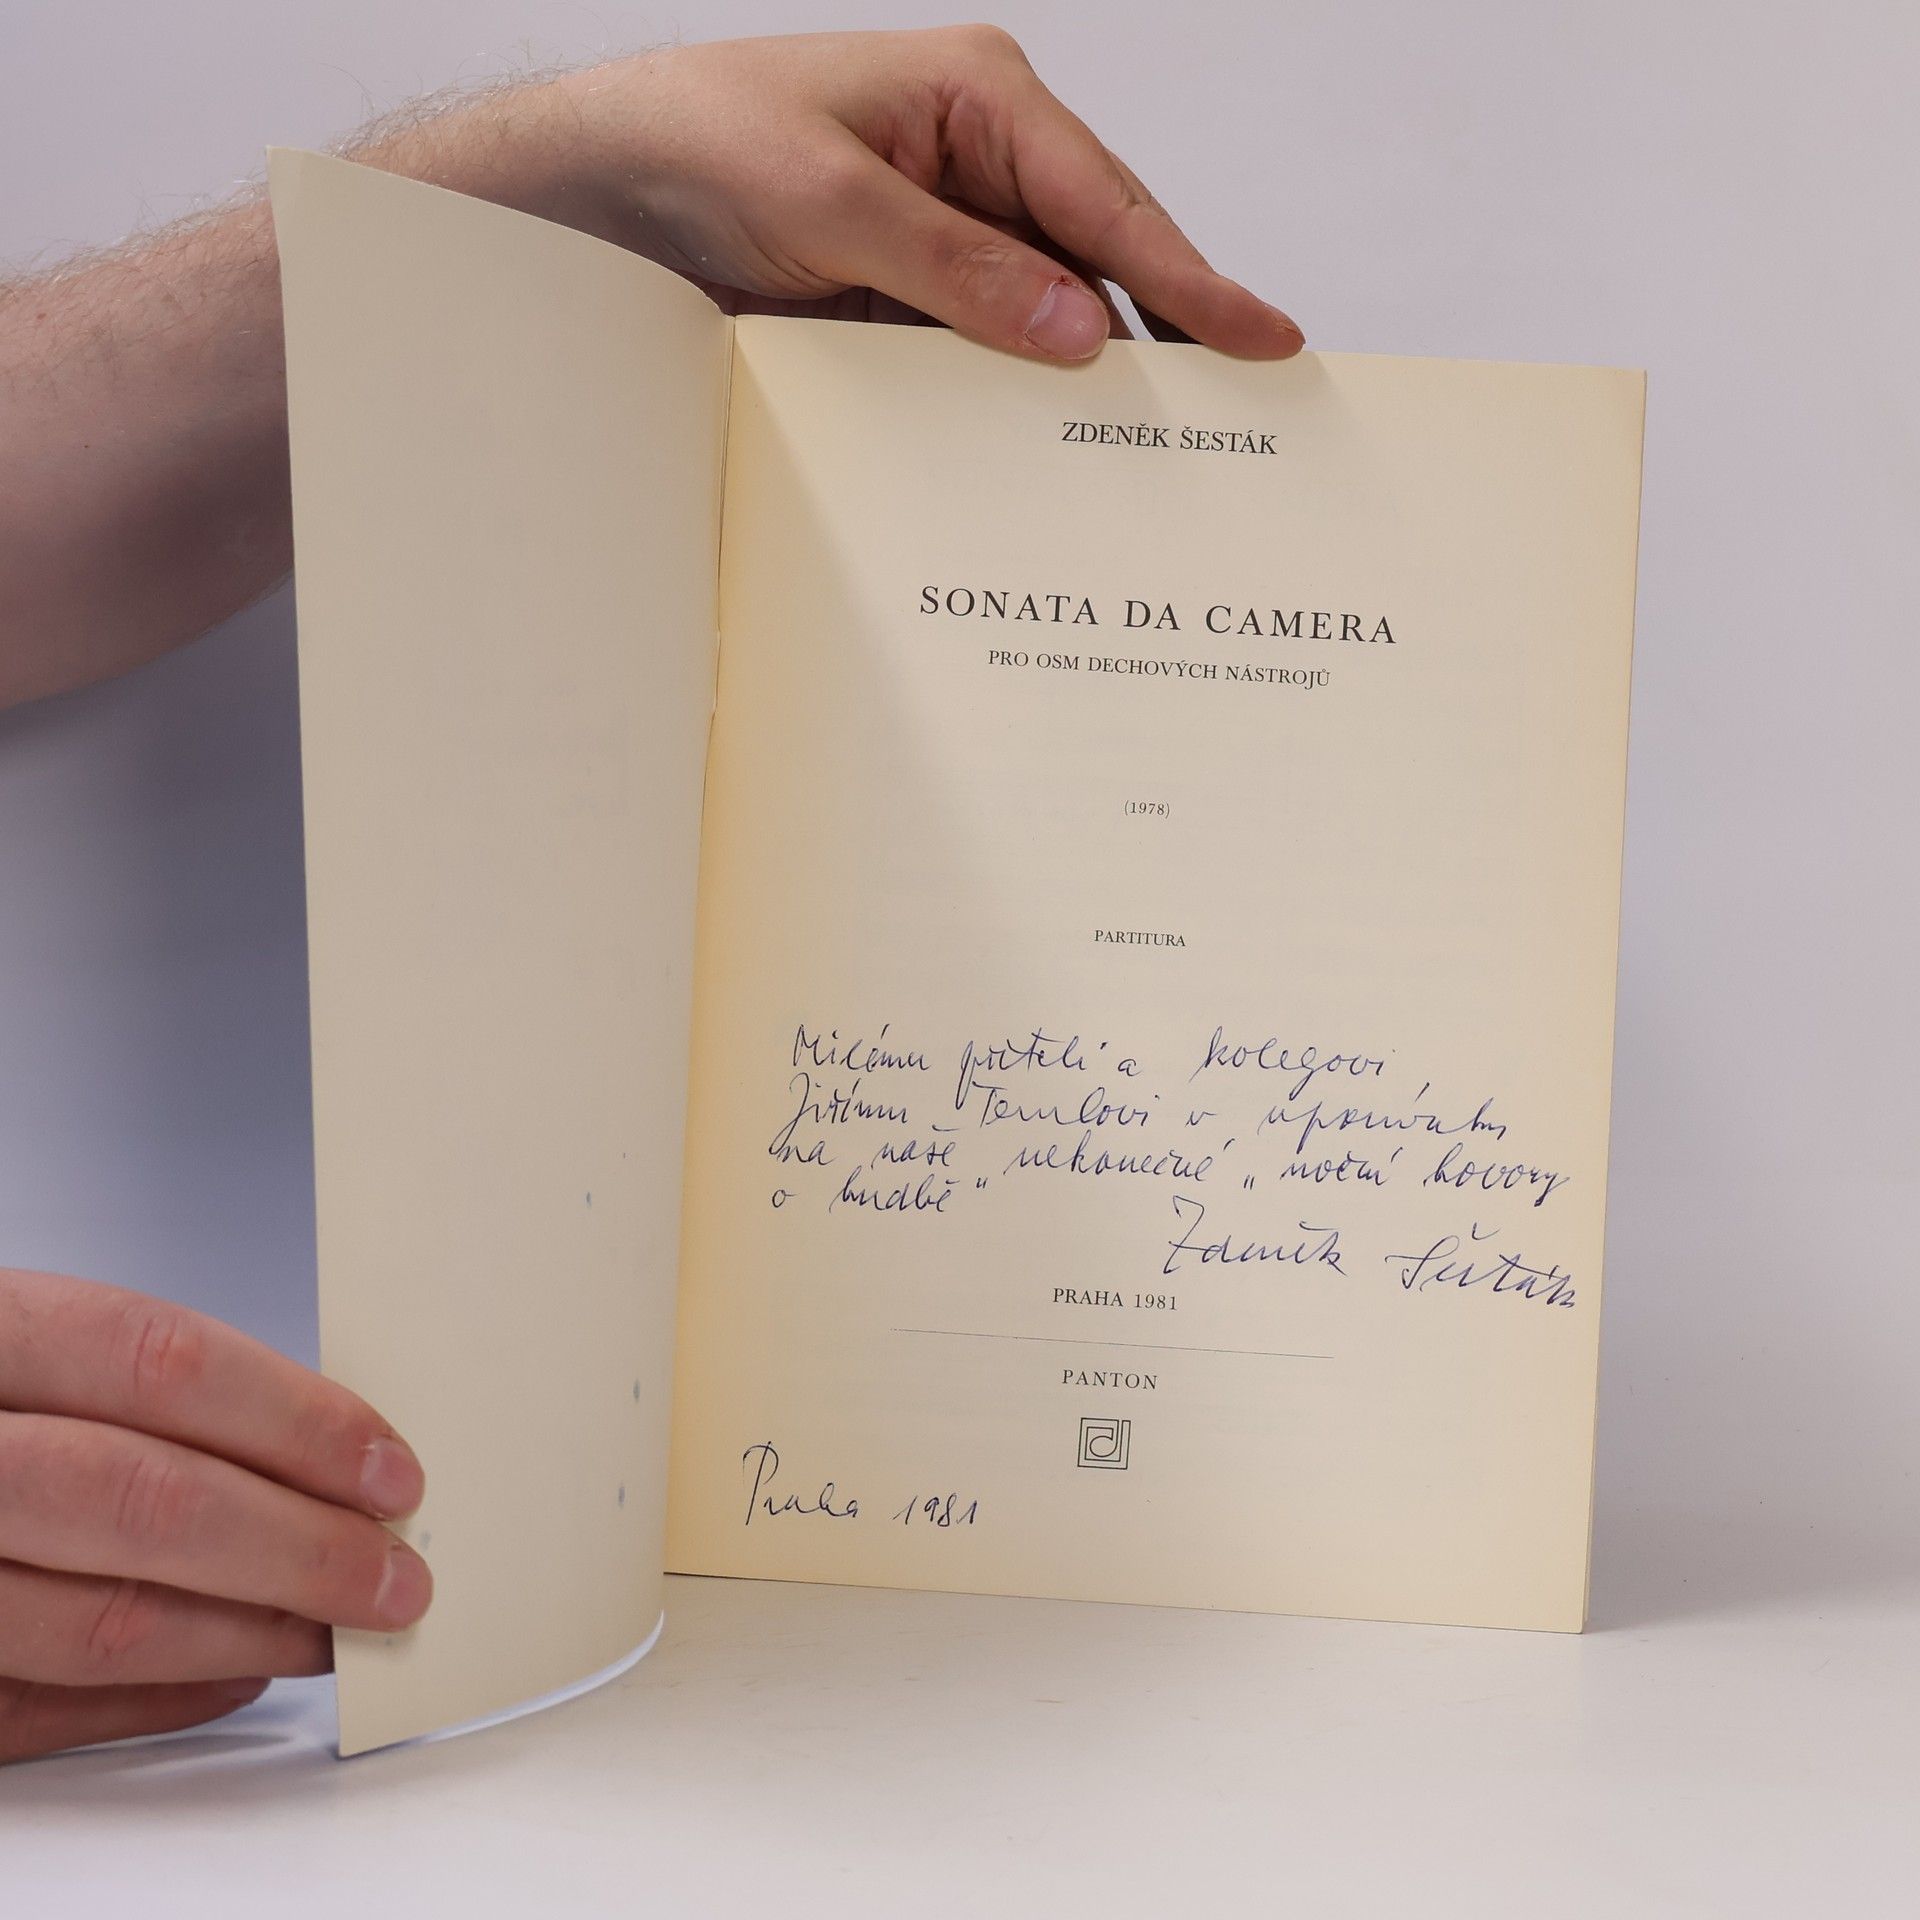 ZDENĚK ŠESTÁK
SONATA DA CAMERA
PRO OSM DECHOVÝCH NÁSTROJŮ
(1978)
PARTITURA
Milému příteli a kolegovi
Jiřímu Temlovi v upomínku
na naše "nekonečné" "noční hovory
o hudbě"
Zdeněk Šesták
PRAHA 1981
PANTON
Praha 1981